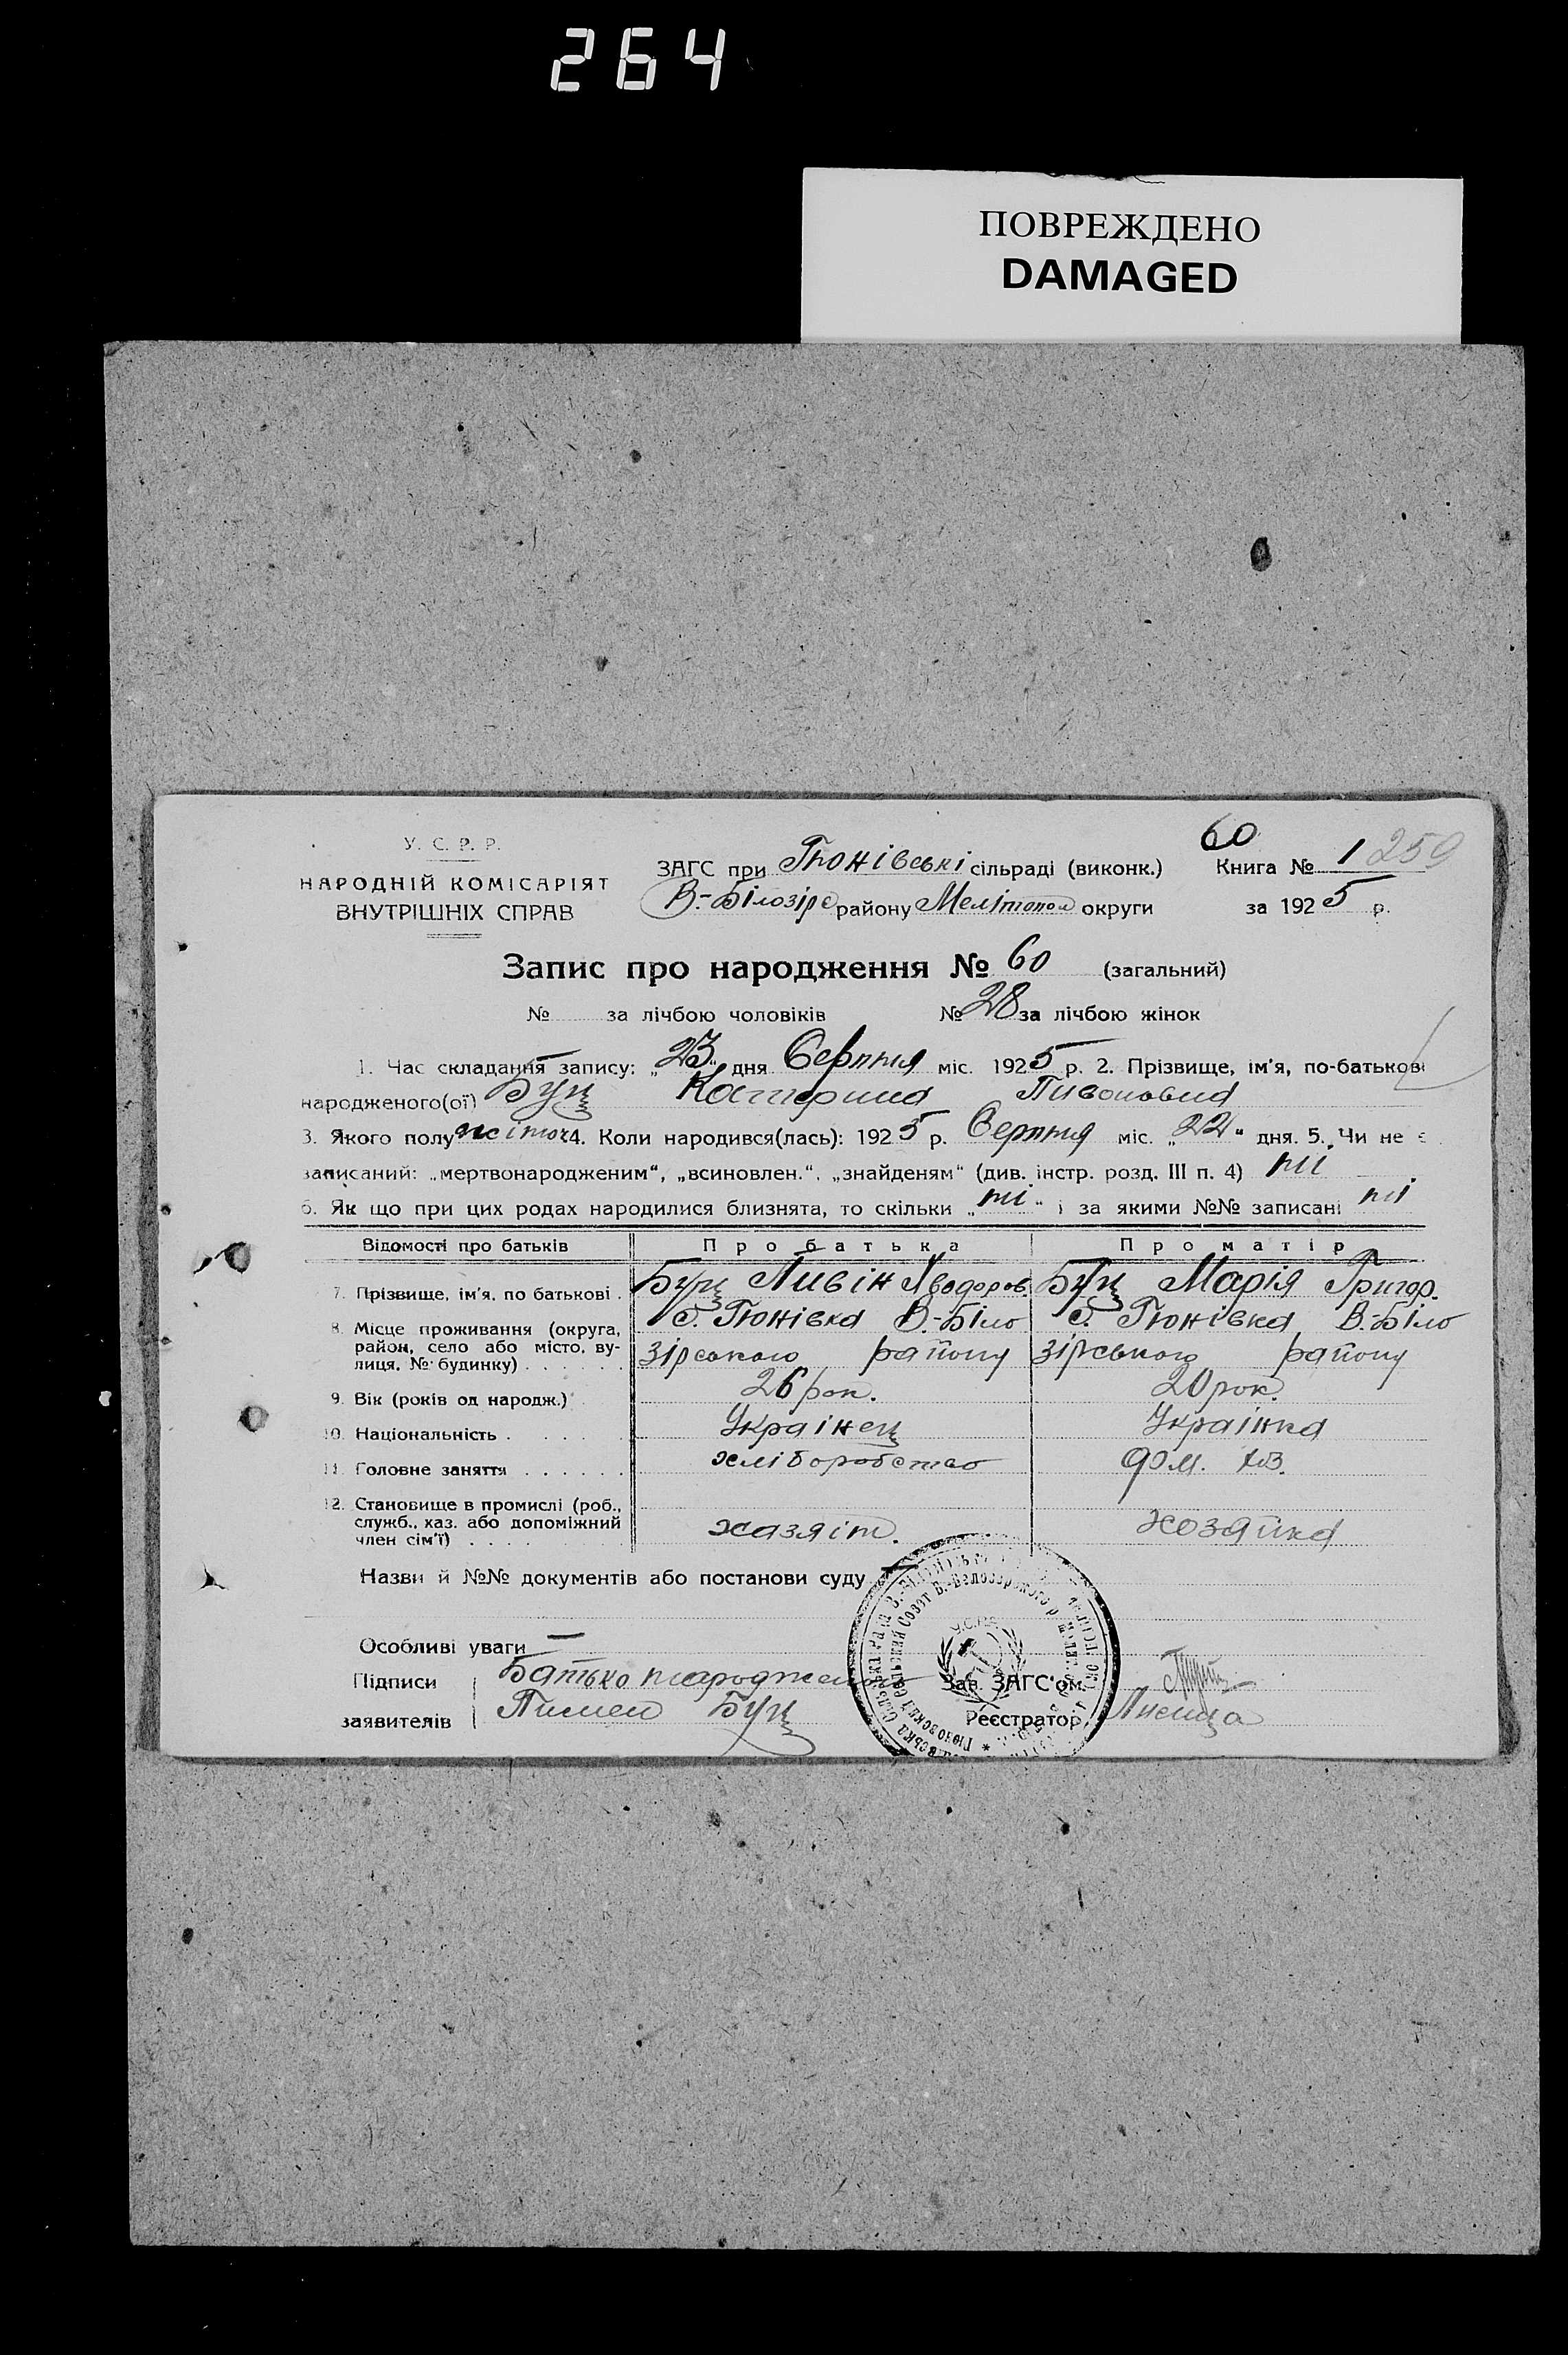 264
ПОВРЕЖДЕНО
DAMAGED
У. С. Р. Р.
НАРОДНІЙ КОМІСАРІЯТ
ВНУТРІШНІХ СПРАВ
60
ЗАГС при Гюнівські сільраді (виконк.) Книга № 1 259
В.-Білозірс району Мелітопол округи за 1925 р.
Запис про народження № 60 (загальний)
№ за лічбою чоловіків № 28 за лічбою жінок
1. Час складання запису: „23“ дня Серпня міс. 1925 р. 2. Прізвище, ім'я, по-батькові
народженого(ої) Буц Катерина
3. Якого полу жіноч 4. Коли народився(лась): 1925 р. Серпня міс. „22“ дня. 5. Чи не є
записаний: „мертвонародженим“, „всиновлен.“, „знайденям“ (див. інстр. розд. III п. 4) ні
6. Як що при цих родах народилися близнята, то скільки „ні“ і за якими №№ записані ні
Відомості про батьків Про батька Про матір
7. Прізвище, ім'я, по батькові . Буц Хводоров. Буц Марія Григор.
8. Місце проживання (округа, район, село або місто, вулиця, № будинку) . . . . . . с. Гюнівка В.-Біло зірського району с. Гюнівка В.-Біло зірського району
9. Вік (років од народж.) 26 рок. 20 рок.
10. Національність . . . . . . Українец Українка
11. Головне заняття . . . . . . хліборобство дом. хоз.
12. Становище в промислі (роб., служб., хаз. або допоміжний член сім'ї) . . . . хазяін. хозяйка
Назви й №№ документів або постанови суду —
Особливі уваги —
Підписи Батько народжен
заявителів Пимен Буц
Зав. ЗАГС'ом
Реєстратор
У.С.Р.Р.